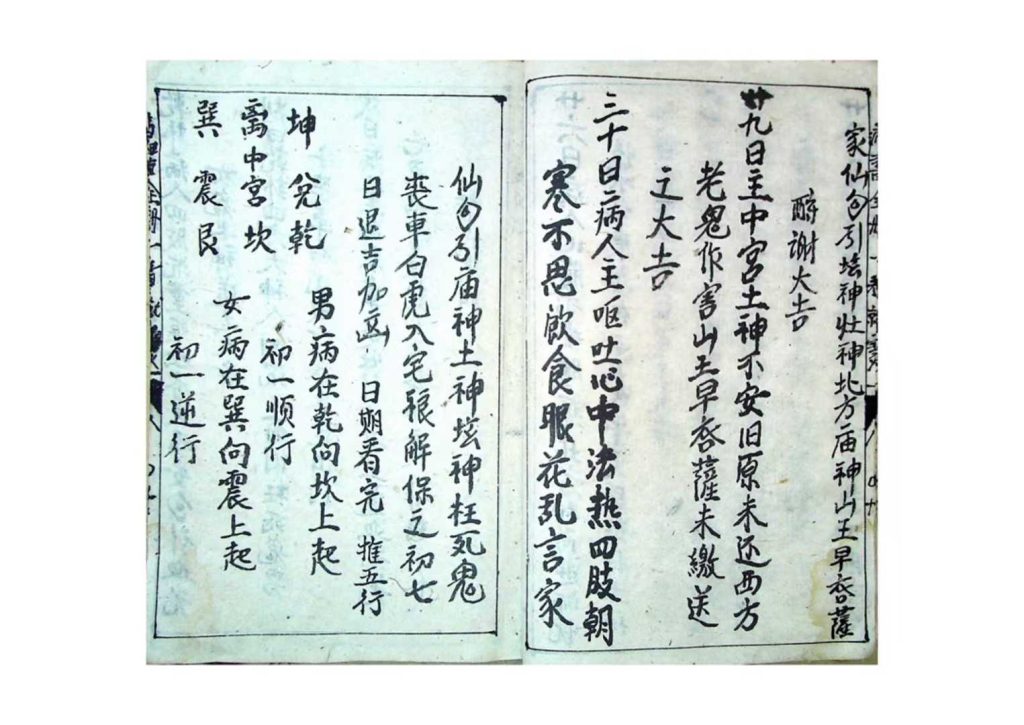 家仙勾引坛神壮神北方庙神山王早呑薩
酧謝大吉
廿九日主中宫土神不安旧原未还西方
老鬼作害山王早呑薩未繳送
之大吉
三十日病人主呕吐心中法热四肢朝
寒不思飲食眼花乱言家
仙勾引庙神土神坛神枉死鬼
丧車白虎入宅 解保之初七
日退吉加凶 日期看完 推五行
坤 兌乾 男病在乾向坎上起
离中宫坎 初一順行
巽 震艮 女病在巽向震上起
初一逆行